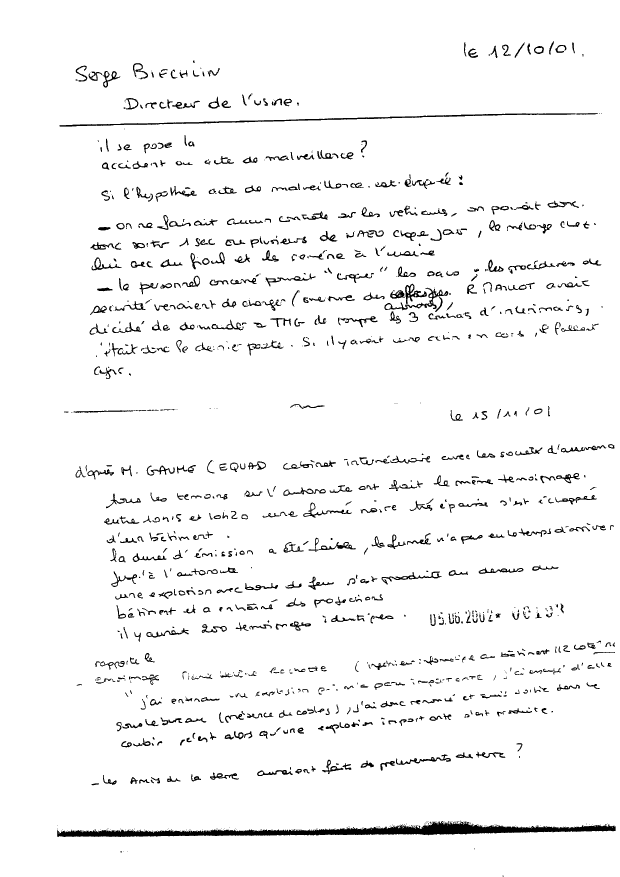 le 12/10/01.
Serge BIECHLIN
Directeur de l'usine.
il se pose la
accident ou acte de malveillance ?
Si l'hypothèse acte de malveillance est évoquée :
— on ne faisait aucun contrôle sur les véhicules, on pouvait donc
donc sortir 1 sac ou plusieurs de chaque jour, le mélange chez
lui avec du fioul et le ramène à l'usine
— le personnel concerné pouvait "craquer" les sacs ; les procédures de
sécurité venaient de changer ( des R MALLOT avait
décidé de demander à TMG de rompre les 3 contrats d'intérimais,
c'était donc le dernier poste. Si il y avait une action en cours, il fallait
agir.
le 15/11/01
d'après M. GAUME (EQUAD cabinet intermédiaire avec les société d'assurance
tous les temoins sur l'autoroute ont fait le même temoignage.
entre 10h15 et 10h20 une fumée noire très épaisse s'est échappée
d'un bâtiment.
la dureé d'émission a été faible, la fumeé n'a pas eu le temps d'arriver
jusqu'à l'autoroute.
une explosion avec boule de feu s'est produite au dessus du
bâtiment et a entraîné des projections
il y aurait 200 temoignages identiques. 05.06.2002* 00193
rapporte le
— Marie Hélène ( au bâtiment 112 coté
"j'ai entendu une explosion qui m'a paru importante, j'ai essayé d'aller
sous le bureau (présence de cables), j'ai donc renoncé et suis sortie dans le
couloir, c'est alors qu'une explosion importante s'est produite.
— les Amis de la terre auraient faits de prelevements de terre ?